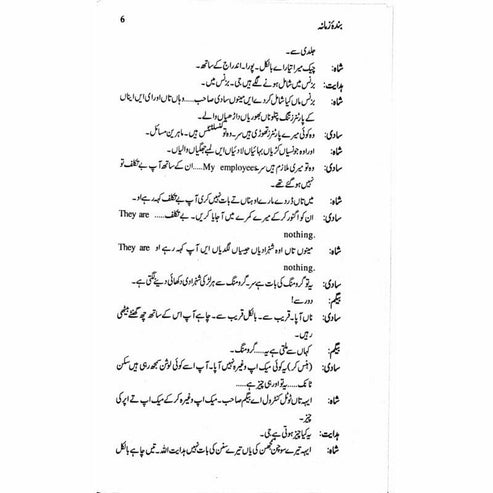 بندۂ زمانہ 6
جلدی سے۔
شاہ: چیک میرا تیار اے بالکل۔ پورا۔ اندراج کے ساتھ۔
ہدایت: بزنس میں شامل ہونے لگے ہیں جی۔ بزنس میں۔
شاہ: بزنس ماں کیا شامل کر دے ایں مینوں ساوی صاحب.... وہاں تاں اور ای ایں ایناں
کے پارٹنرز تنگ پتلوناں بھوریاں داڑھیاں والے۔
ساوی: وہ کوئی میرے پارٹنرز تھوڑی ہیں سر۔ وہ تو کنسلٹنٹس ہیں۔ ماہرین مسائل۔
شاہ: اور اوہ جونسیاں کڑیاں بہانیاں لادنیاں ایں لمبے جھگیاں والیاں۔
ساوی: وہ تو میری ملازم ہیں سر My employees..... ان کے ساتھ آپ بے تکلف تو
نہیں ہو گئے تھے۔
شاہ: میں تاں ڈر دے مارے اوہناں تے بات نہیں کری آپ بے تکلف کہہ رہے او۔
ساوی: ان کو اگنور کر کے میرے کمرے میں آ جایا کریں۔ بے تکلف..... They are
nothing.
شاہ: مینوں تاں اوہ شہزادیاں جیسیاں لگدیاں ایں آپ کہہ رہے او They are
nothing.
ساوی: یہ تو گرومنگ کی بات ہے سر۔ گرومنگ سے ہر لڑکی شہزادی دکھائی دینے لگتی ہے۔
بیگم: دور سے!
ساوی: ناں آپا۔ قریب سے۔ بالکل قریب سے۔ چاہے آپ اس کے ساتھ چھ گھنٹے بیٹھی
رہیں۔
بیگم: کہاں سے ملتی ہے یہ..... گرومنگ۔
ساوی: (ہنس کر) یہ کوئی میک اپ وغیرہ نہیں آپا۔ آپ اسے کوئی لوشن سمجھ رہی ہیں سکن
ٹانک..... یہ تو اور ہی چیز ہے.....
شاہ: ایہہ تاں ٹوٹل کنٹرول اے بیگم صاحب۔ میک اپ وغیرہ کر کے میک اپ تے اپر کی
چیز۔
ہدایت: یہ کیا چیز ہوتی ہے جی۔
شاہ: ایہہ تیرے سوچن سمجھن کی یاں تیرے سنن کی بات نہیں ہدایت اللہ۔ تیں چاہے بالکل